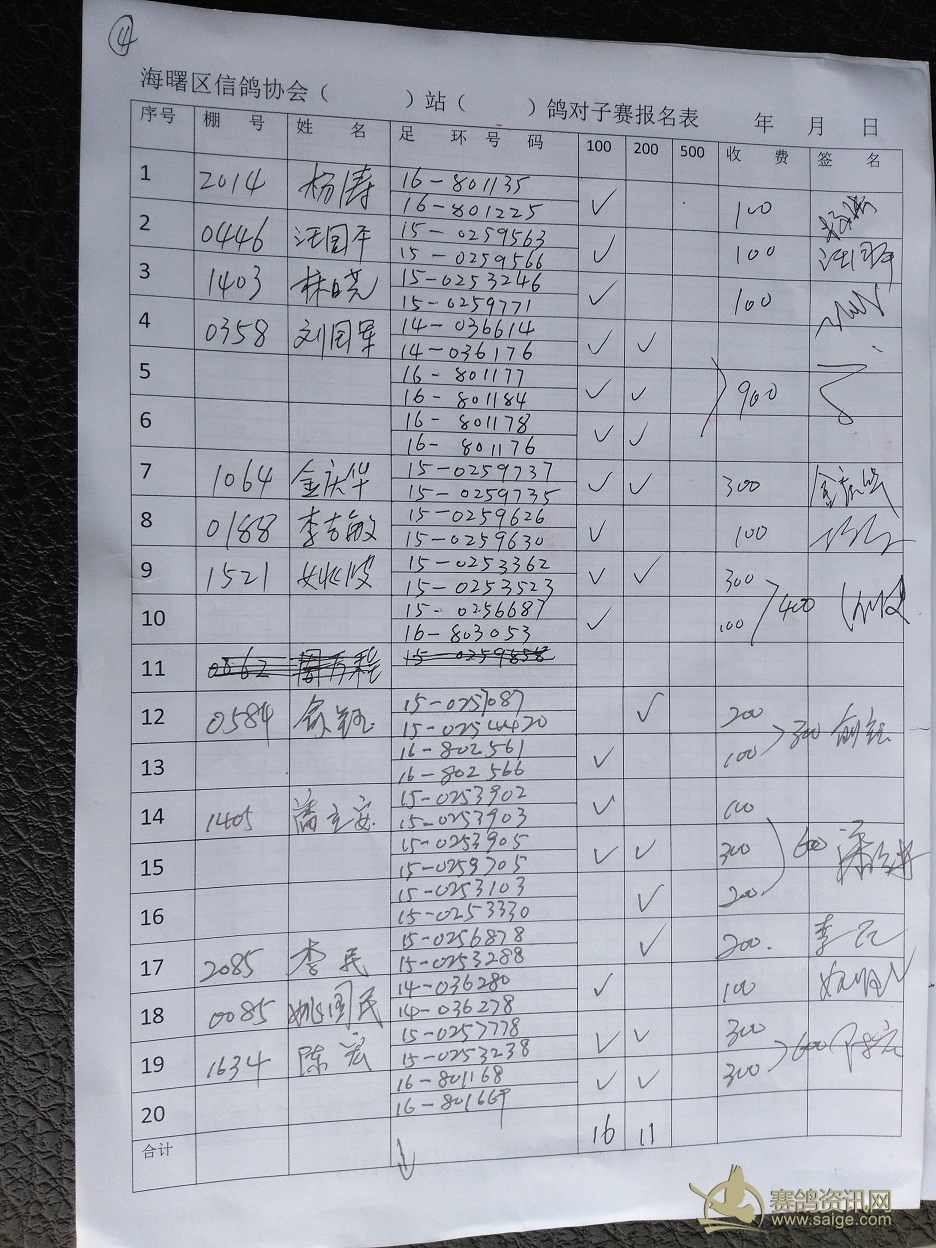 ④
海曙区信鸽协会（ ）站（ ）鸽对子赛报名表 年 月 日
序号 棚 号 姓 名 足 环 号 码 100 200 500 收 费 签 名
1 2014 杨涛 16-801135 ✓ 100
16-801225
2 0446 汪国平 15-0259563 ✓ 100 汪国平
15-0259566
3 1403 林晓 15-0253246 ✓ 100
15-0259771
4 0358 刘国军 14-036614 ✓ ✓
14-036176
5 16-801177 ✓ ✓ 900
16-801184
6 16-801178 ✓ ✓
16-801176
7 1064 金庆华 15-0259737 ✓ ✓ 300
15-0259735
8 0188 李吉敏 15-0259626 ✓ 100
15-0259630
9 1521 15-0253362 ✓ ✓ 300
15-0253523
10 15-0256687 ✓ 100 400
16-803053
11
12 0584 俞钰 15-0257087 ✓ 200
15-0254420
13 16-802561 ✓ 100 300 俞钰
16-802566
14 1405 潘立安 15-0253902 ✓ 100
15-0253903
15 15-0253905 ✓ ✓ 300 600
15-0259705
16 15-0253103 ✓ 200
15-0253330
17 2085 李民 15-0256878 ✓ 200. 李民
15-0253288
18 0085 姚国民 14-036280 ✓ 100
14-036278
19 1634 陈宏 15-0257778 ✓ ✓ 300 600 陈宏
15-0253238
20 16-801168 ✓ ✓ 300
合计 16 11
赛鸽资讯网
www.saige.com